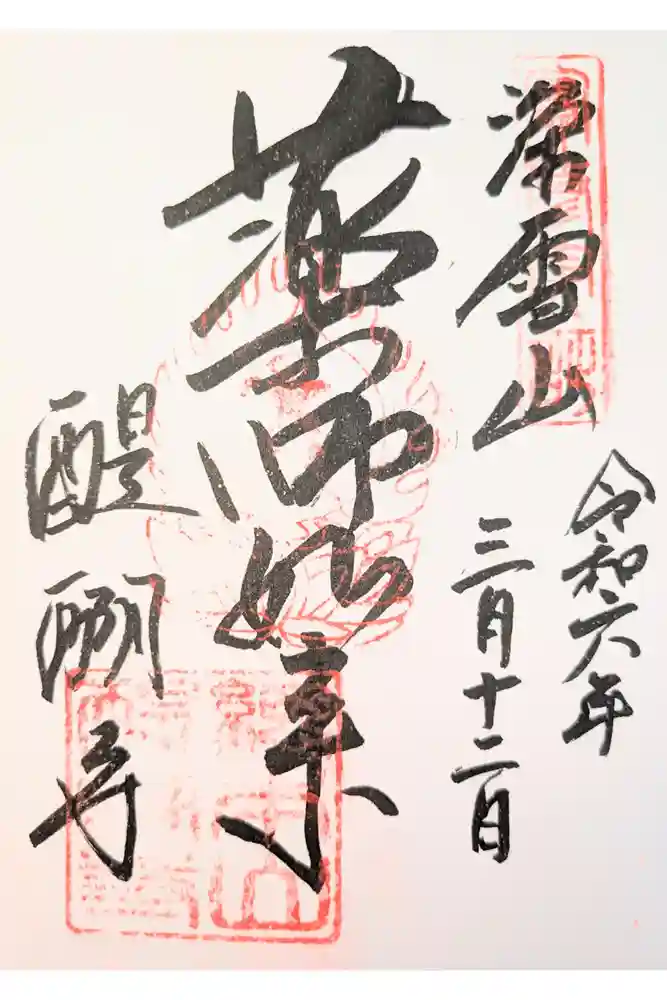 令和六年
三月十二日
深雪山
薬師如来
醍醐寺